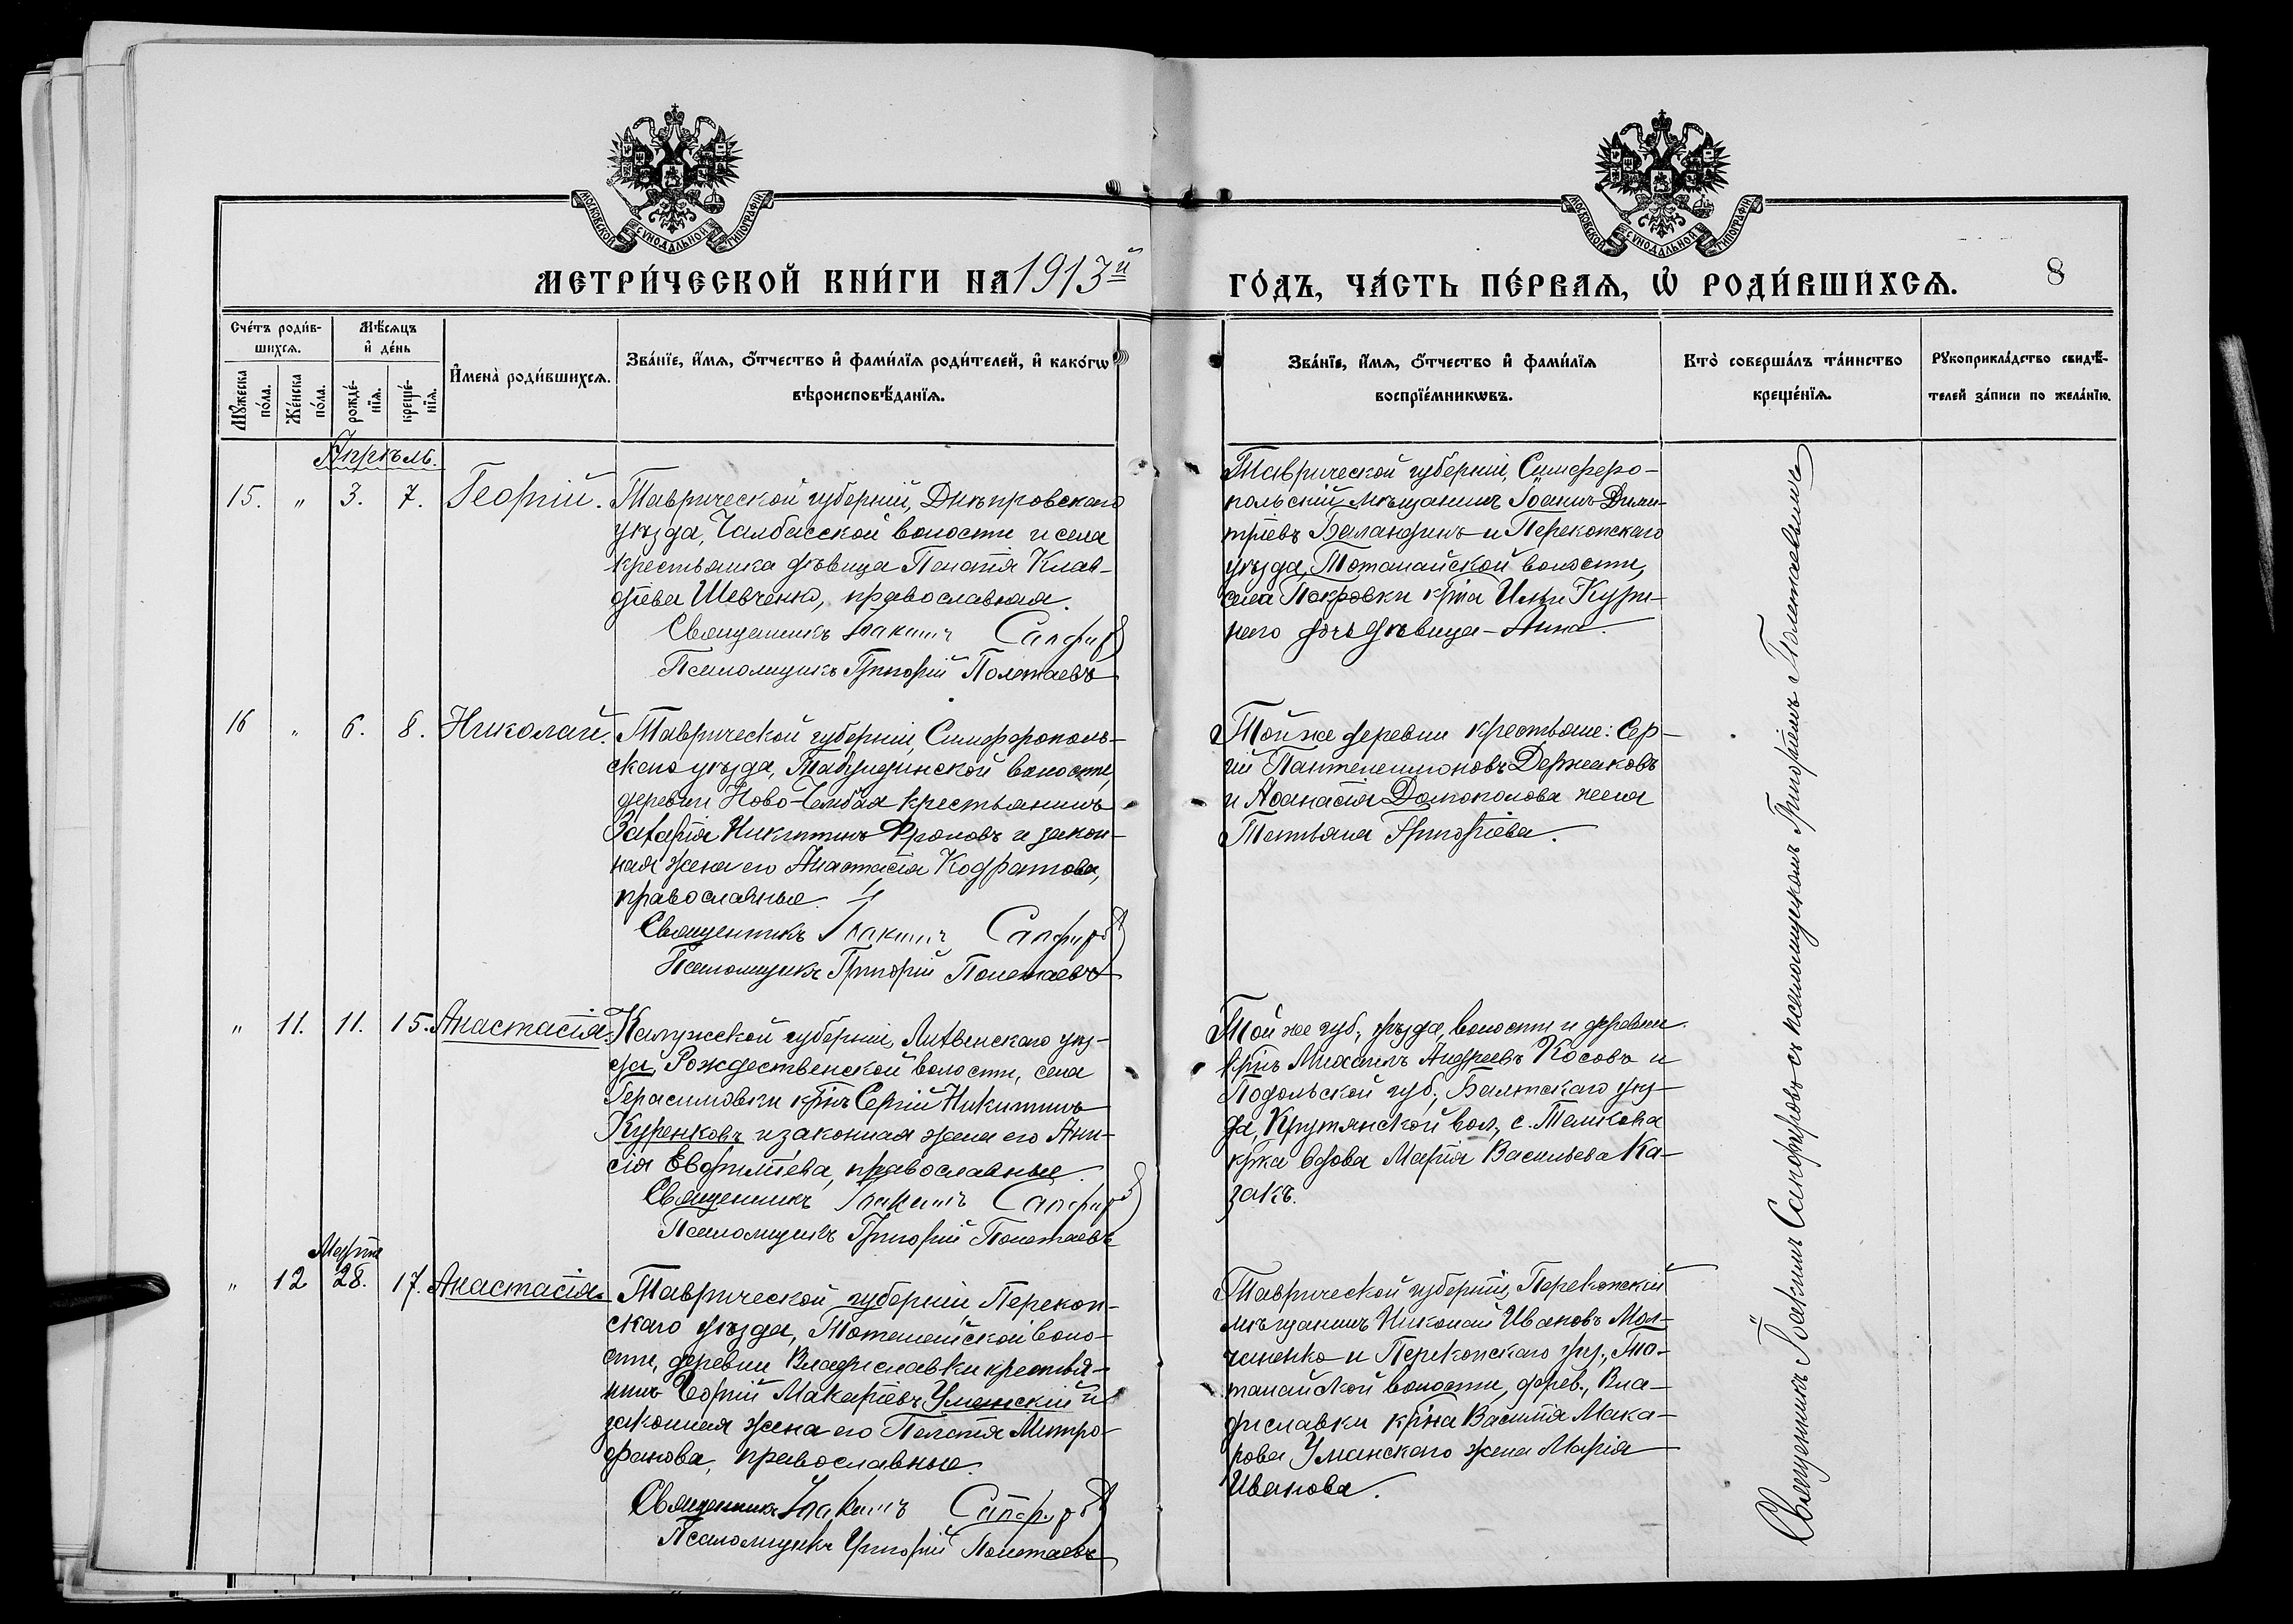 МОСКОВСКОЙ СѴНОДАЛЬНОЙ ТИПОГРАФІИ.
МОСКОВСКОЙ СѴНОДАЛЬНОЙ ТИПОГРАФІИ.
МЕТРИ́ЧЕСКОЙ КНИ́ГИ НА 1913й
ГО́ДЪ, ЧА́СТЬ ПЕ́РВАѦ, Ѽ РОДИ́ВШИХСѦ.
8
Сче́тъ роди́в-
шихсѧ.
Мꙋ́жеска по́ла.
Же́нска по́ла.
Мѣ́сѧцъ
и҆ де́нь
рожде́-
нїѧ.
креще́-
нїѧ.
И҆мена̀ роди́вшихсѧ.
Зва́нїе, и҆́мѧ, ѻ҆́тчество и҆ фами́лїѧ роди́телей, и҆ како́гѡ
вѣроисповѣ́данїѧ.
Зва́нїе, и҆́мѧ, ѻ҆́тчество и҆ фами́лїѧ
воспрїе́мникѡвъ.
Кто̀ соверша́лъ та́инство
креще́нїѧ.
Рꙋкоприкла́дство свидѣ́-
телей за́писи по жела́нїю.
Апрѣль.
15. „ 3. 7. Георгій.
Таврической губерніи, Днѣпровскаго
уѣзда, Чалбасской волости и села
крестьянка дѣвица Пелагія Клав-
діева Шевченко, православная.
Священникъ Іоакимъ Сапфировъ
Псаломщикъ Григорій Полетаевъ
Таврической губерніи, Симферо-
польскій мѣщанинъ Іоаннъ Дими-
тріевъ Баландинъ и Перекопскаго
уѣзда, Тотанайской волости,
села Покровки кр-на Ильи Кури-
наго дочь дѣвица - Анна.
16 „ 6. 8. Николай.
Таврической губерніи, Симферополь-
скаго уѣзда, Табулдинской волости,
деревни Ново-Чембая крестьянинъ
Захарія Никитинъ Фроловъ и закон-
ная жена его Анастасія Кодратова,
православные.
Священникъ Іоакимъ Сапфировъ
Псаломщикъ Григорій Полетаевъ
Той же деревни крестьяне: Сер-
гій Пантелеимоновъ Держаковъ
и Аѳанасія Домополова жена
Татьяна Григоріева.
„ 11. 11. 15. Анастасія.
Калужской губерніи, Литвенскаго уѣз-
да, Рождественской волости, села
Герасимовки кр-нъ Сергій Никитинъ
Куренковъ и законная жена его Ани-
сія Евфиміева, православные.
Священникъ Іоакимъ Сапфировъ
Псаломщикъ Григорій Полетаевъ
Той же губ., уѣзда, волости и деревни
кр-нъ Михаилъ Андреевъ Косовъ и
Подольской губ., Балтскаго уѣз-
да, Крутянской вол., с.
кр-ка вдова Марія Васильева Ка-
закъ.
Марта
„ 12 28. 17. Анастасія.
Таврической губерніи, Перекоп-
скаго уѣзда, Тотанайской воло-
сти, деревни Владиславки крестья-
нинъ Георгій Макаріевъ Уманскій и
законная жена его Пелагія Митро-
фанова, православные.
Священникъ Іоакимъ Сапфировъ
Псаломщикъ Григорій Полетаевъ
Таврической губерніи, Перекопскій
мѣщанинъ Николай Ивановъ Мол-
чаненко и Перекопскаго уѣз., То-
танайской волости, дерев. Вла-
диславки кр-на Василія Мака-
рова Уманскаго жена Марія
Иванова.
Священникъ Іоакимъ Сапфировъ съ псаломщикомъ Григоріемъ Полетаевымъ